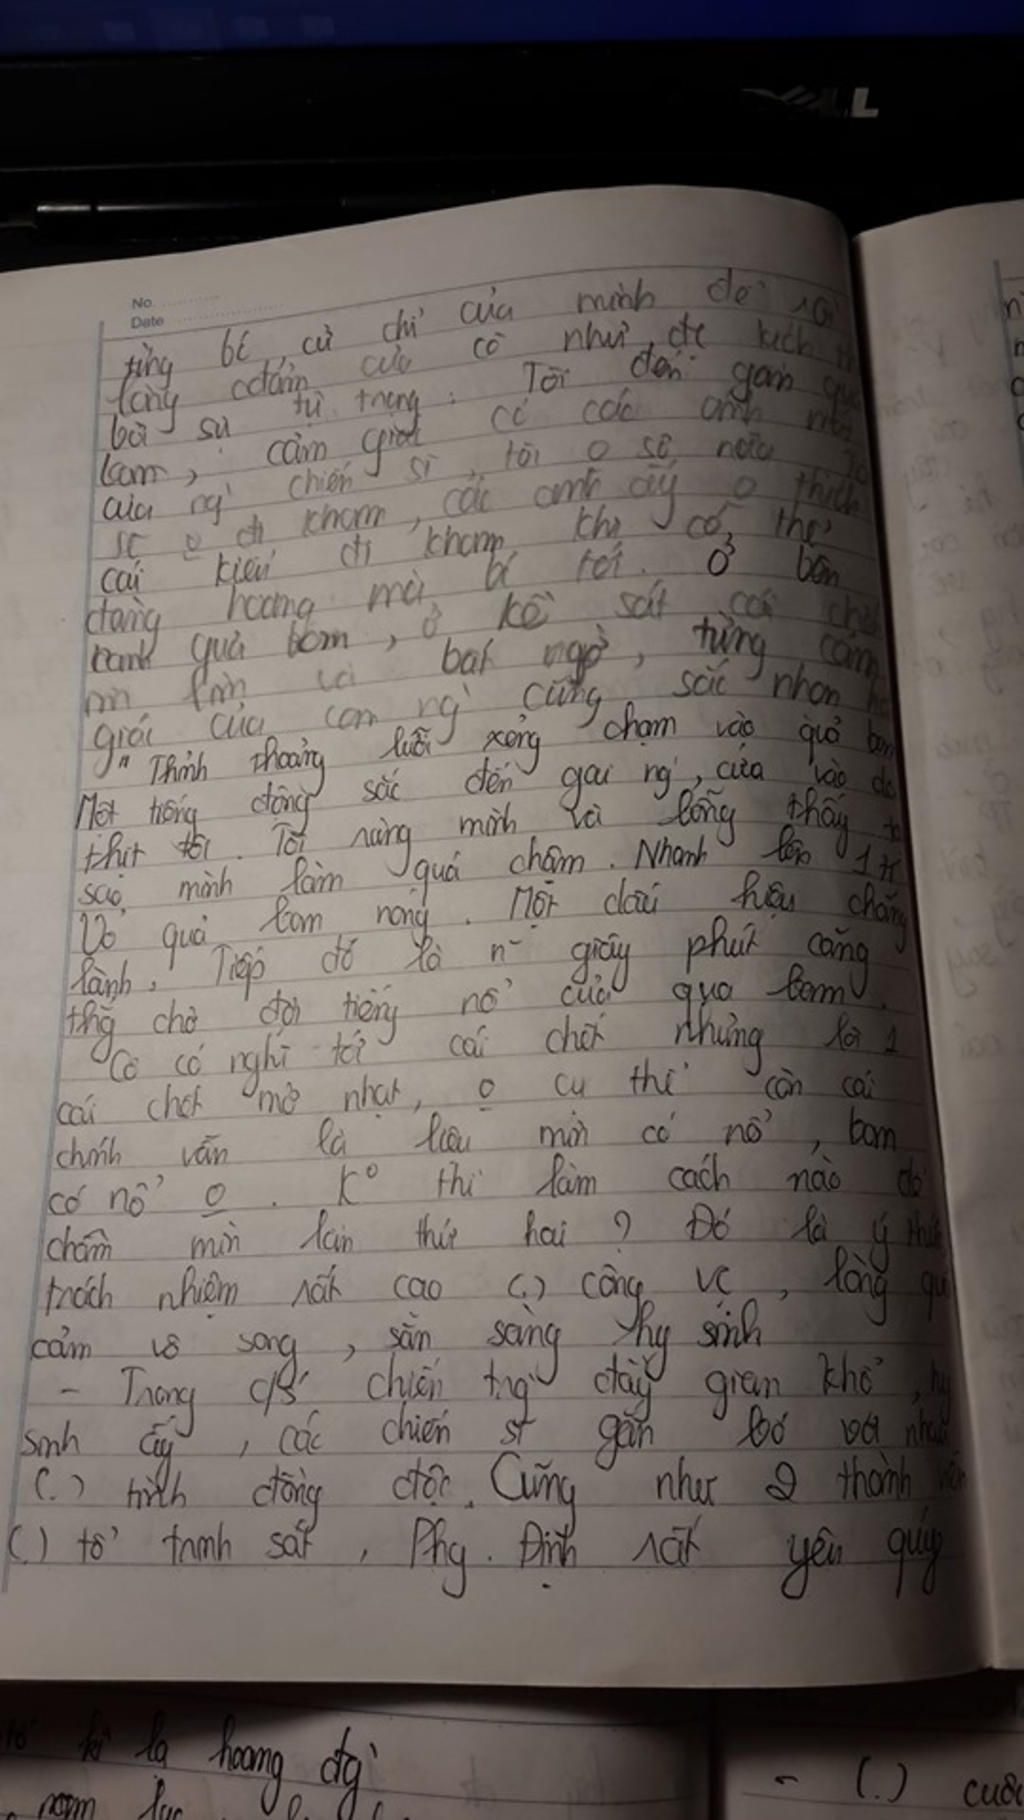 DELL
No.
Date
từng bc, cử chỉ của mình để rồi
lòng can đảm của cô như đc kích th
bởi sự tự trọng. Tôi đến gần quả
bom, cảm giác có các ánh mắt
của ng` chiến sĩ, tôi o sợ nữa. Tôi
sẽ o đi khom, các anh ấy o thích
cái kiểu đi khom khi có thể
đàng hoàng mà bc tới. Ở bên
cạnh quả bom, ở kề sát cái chết
im lìm và bất ngờ, từng cảm
giác của con ng` cũng sắc nhọn
"Thỉnh thoảng lưỡi xẻng chạm vào quả bom
Một tiếng động sắc đến gai ng`, cứa vào da
thịt tôi. Tôi rùng mình và bỗng thấy
sao mình làm quá chậm. Nhanh lên 1 tí
Vỏ quả bom nóng. Một dấu hiệu chẳng
lành. Tiếp đó là n~ giây phút căng
thg chờ đợi tiếng nổ của quả bom.
Cô có nghĩ tới cái chết nhưng là 1
cái chết mờ nhạt, o cụ thể còn cái
chính vẫn là liệu mìn có nổ, bom
có nổ o. Ko thì làm cách nào để
châm mìn lần thứ hai? Đó là ý thức
trách nhiệm rất cao (.) công vc, lòng quả
cảm vô song, sẵn sàng hy sinh
- Trong c/s chiến trg` đầy gian khổ, hy
sinh ấy, các chiến sĩ gắn bó với nhau
(.) tình đồng đội. Cũng như 2 thành viên
(.) tổ trinh sát, Phg. Định rất yêu quý
kì lạ hoang đg`
- (.) cuộc